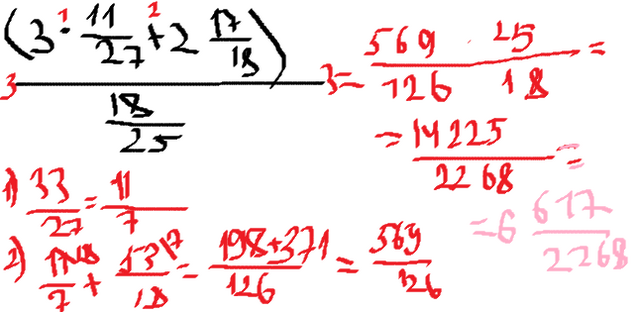 (3 · 11/27 + 2 17/18) / (18/25) = 569/126 · 25/18 =
1 2 3 3
= 14225/2268 =
= 6 617/2268
1) 33/27 = 11/7
2) 11\18/7 + 53\7/18 = 198+371/126 = 569/126